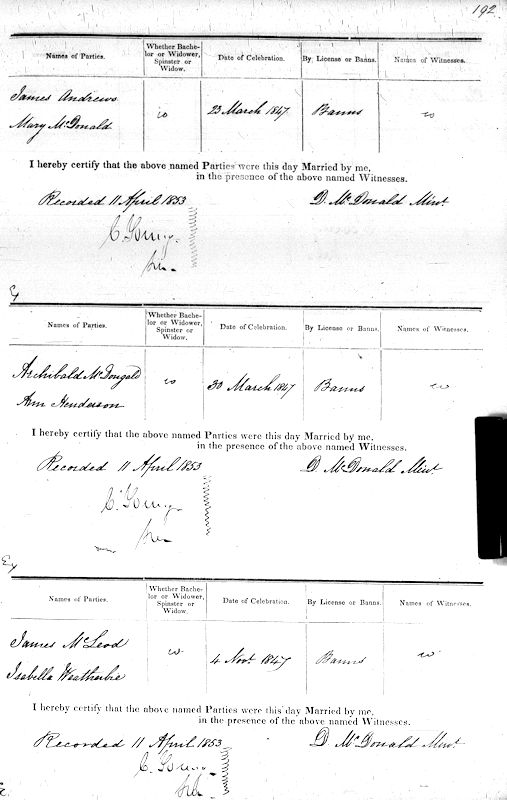 192
Names of Parties. Whether Bache-lor or Widower, Spinster or Widow. Date of Celebration. By License or Banns. Names of Witnesses.
James Andrews
23 March 1847 Banns
Mary McDonald
I hereby certify that the above named Parties were this day Married by me,
in the presence of the above named Witnesses.
Recorded 11 April 1853 D. McDonald Minr
Names of Parties. Whether Bache-lor or Widower, Spinster or Widow. Date of Celebration. By License or Banns. Names of Witnesses.
Archibald McDougald
30 March 1847 Banns
Ann Henderson
I hereby certify that the above named Parties were this day Married by me,
in the presence of the above named Witnesses.
Recorded 11 April 1853 D. McDonald Minr
Names of Parties. Whether Bache-lor or Widower, Spinster or Widow. Date of Celebration. By License or Banns. Names of Witnesses.
James McLeod
4 Novr 1847 Banns
Isabella Weatherbie
I hereby certify that the above named Parties were this day Married by me,
in the presence of the above named Witnesses.
Recorded 11 April 1853 D. McDonald Minr